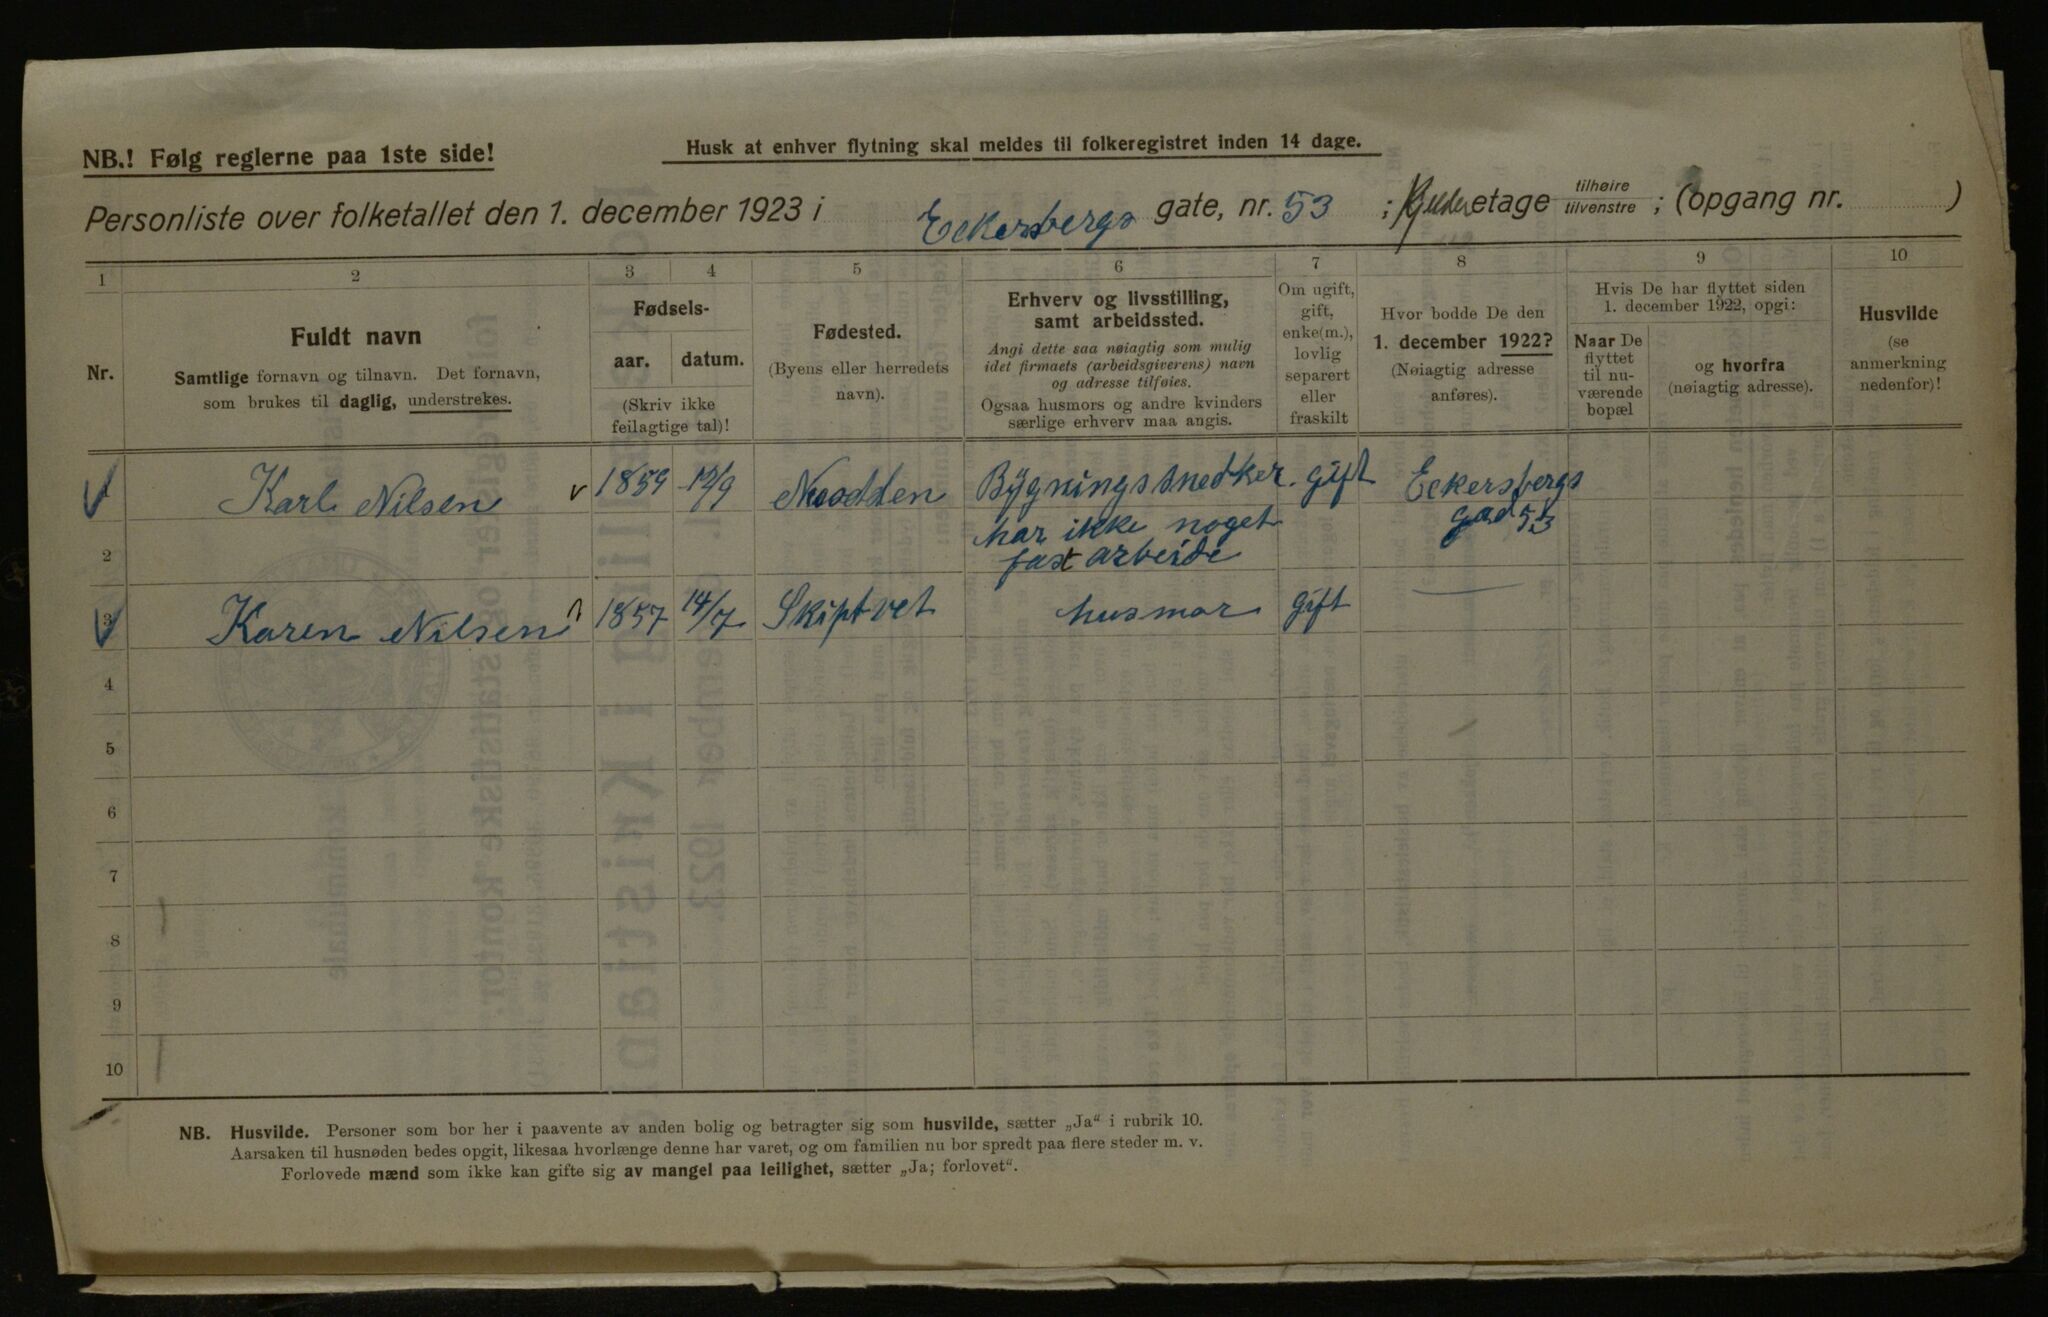 NB.! Følg reglerne paa 1ste side!
Husk at enhver flytning skal meldes til folkeregistret inden 14 dage.
Personliste over folketallet den 1. december 1923 i Eckersbergs gate, nr. 53 ; Kjelder etage tilhøire tilvenstre ; (opgang nr. )
1 2 3 4 5 6 7 8 9 10
Nr.
Fuldt navn
Samtlige fornavn og tilnavn. Det fornavn,
som brukes til daglig, understrekes.
Fødsels-
aar. datum.
(Skriv ikke
feilagtige tal)!
Fødested.
(Byens eller herredets
navn).
Erhverv og livsstilling,
samt arbeidssted.
Angi dette saa nøiagtig som mulig
idet firmaets (arbeidsgiverens) navn
og adresse tilføies.
Ogsaa husmors og andre kvinders
særlige erhverv maa angis.
Om ugift,
gift,
enke(m.),
lovlig
separert
eller
fraskilt
Hvor bodde De den
1. december 1922?
(Nøiagtig adresse
anføres).
Hvis De har flyttet siden
1. december 1922, opgi:
Naar De
flyttet
til nu-
værende
bopæl
og hvorfra
(nøiagtig adresse).
Husvilde
(se
anmerkning
nedenfor)!
1 Karl Nilsen 1859 12/9 Nesodden Bygningssnedker gift Eckersbergs
gad 53
2 har ikke noget
fast arbeide
3 Karen Nilsen 1857 14/7 Skiptvet husmor gift —
4
5
6
7
8
9
10
NB. Husvilde. Personer som bor her i paavente av anden bolig og betragter sig som husvilde, sætter „Ja“ i rubrik 10.
Aarsaken til husnøden bedes opgit, likesaa hvorlænge denne har varet, og om familien nu bor spredt paa flere steder m. v.
Forlovede mænd som ikke kan gifte sig av mangel paa leilighet, sætter „Ja; forlovet“.